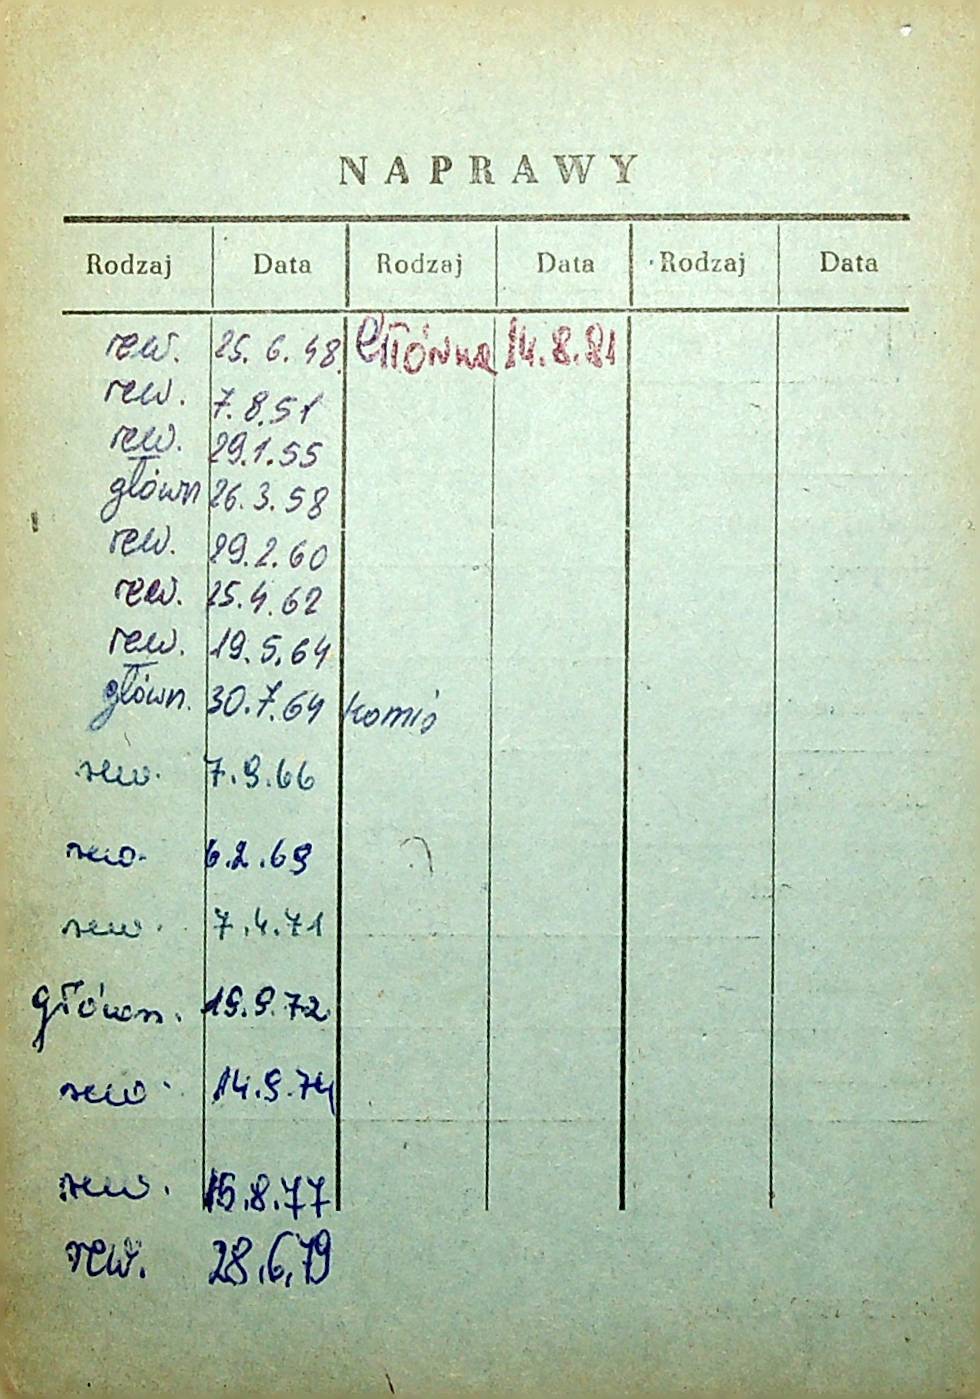 NAPRAWY
Rodzaj Data Rodzaj Data Rodzaj Data
rew. 25.6.48. Główna 14.8.81
rew. 7.8.51
rew. 29.1.55
główn 26.3.58
rew. 29.2.60
rew. 25.4.62
rew. 19.5.64
główn. 30.7.64 komis
rew. 7.9.66
rew. 6.2.69
rew. 7.4.71
główn. 19.9.72
rew. 14.9.74
rew. 15.8.77
rew. 28.6.79